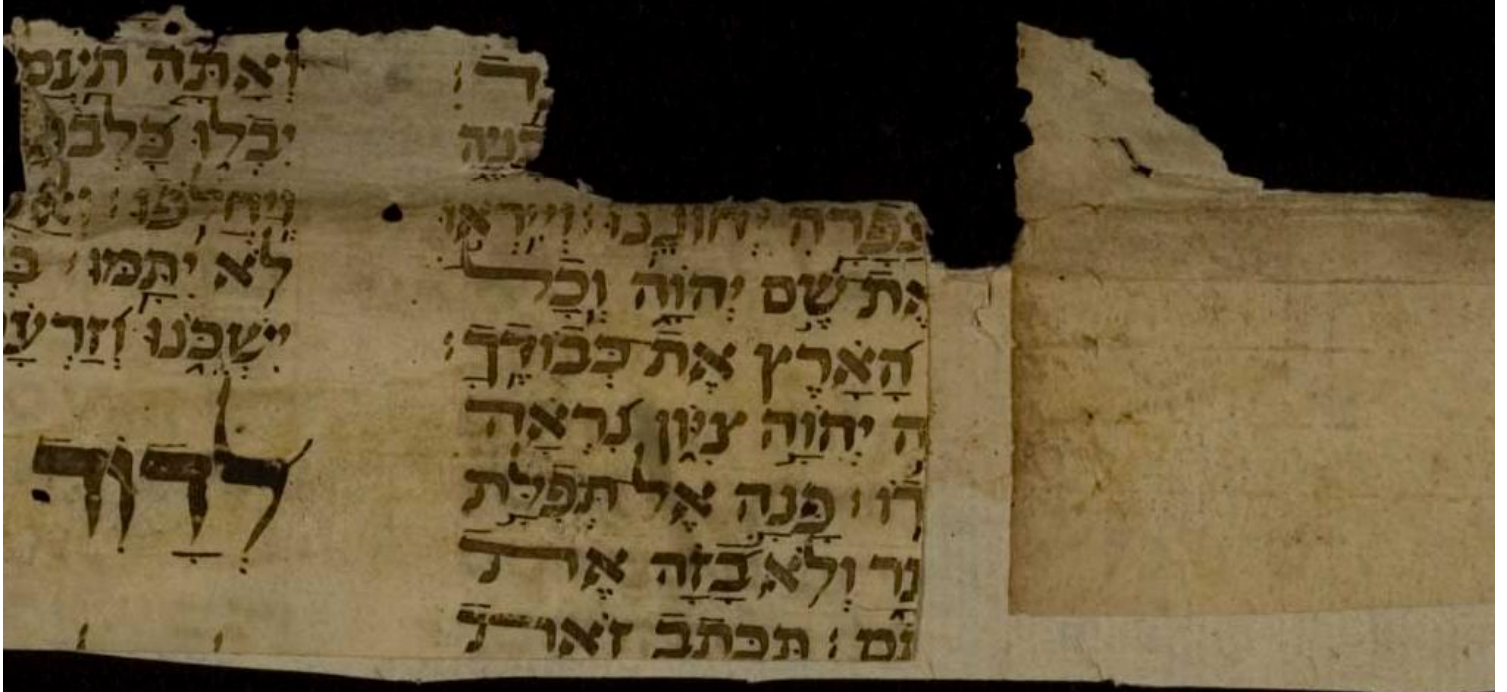 ד׃
נֶיהָ
עֲפָרָהּ יְחוֹנֵנוּ׃ וְיִירְאוּ
אֶת שֵׁם יְהוָה וְכָל
הָאָרֶץ אֶת כְּבוֹדֶךָ׃
ה יְהוָה צִיּוֹן נִרְאָה
דוֹ׃ פָּנָה אֶל תְּפִלַּת
עָר וְלֹא בָזָה אֶת
תָם׃ תִּכָּתֶב זֹאת
וְאַתָּה תַעֲמ
יִבְלוּ כַּלְּבוּ
וְיַחֲלֹפוּ׃ וְאַ
לֹא יִתָּמּוּ׃ בְּ
יִשְׁכֹּנוּ וְזַרְעָ
לְדָוִד